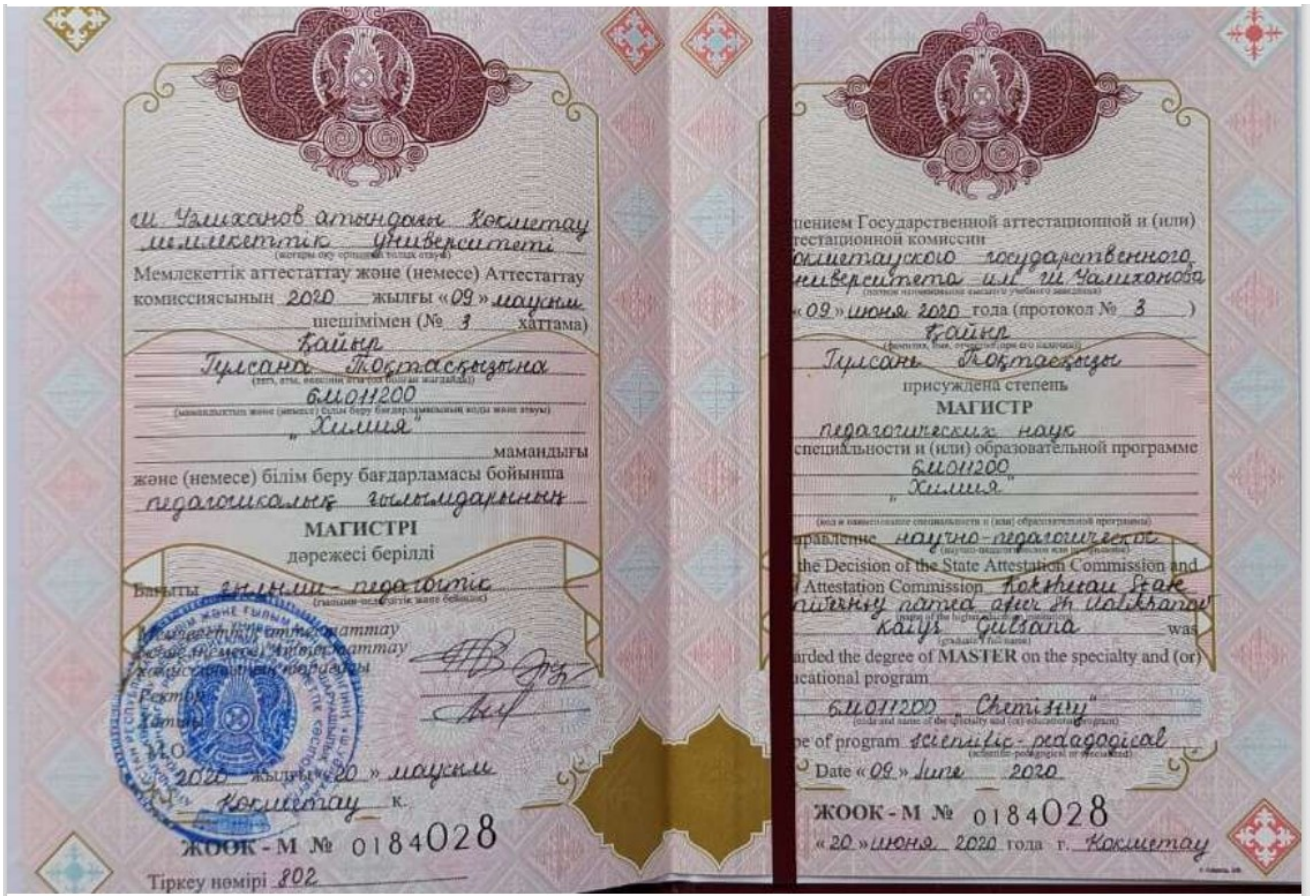 Ш Уәлиханов атындағы Көкшетау
мемлекеттік университеті
(жоғары оқу орнының толық атауы)
Мемлекеттік аттестаттау және (немесе) Аттестаттау
комиссиясының 2020 жылғы «09» маусым
шешімімен (№ 3 хаттама)
Қайыр
Гүлсана Тоқтасқызына
(тегі, аты, әкесінің аты (ол болған жағдайда))
6М011200
(мамандықтың және (немесе) білім беру бағдарламасының коды және атауы)
"Химия"
мамандығы
және (немесе) білім беру бағдарламасы бойынша
педагогикалық ғылымдарының
МАГИСТРІ
дәрежесі берілді
Бағыты ғылыми-педагогтік
(ғылыми-педагогтік және бейіндік)
Мемлекеттік аттестаттау
және (немесе) Аттестаттау
комиссиясының төрағасы
Ректор
Хатшы
М.О.
2020 жылғы «20» маусым
Көкшетау қ.
ЖООК - М № 0184028
Тіркеу нөмірі 802
шением Государственной аттестационной и (или)
тестационной комиссии
окшетауского государственного
ниверситета им Ш Уалиханова
(полное наименование высшего учебного заведения)
«09» июня 2020 года (протокол № 3 )
Қайыр
(фамилия, имя, отчество (при его наличии))
Гүлсане Тоқтасқызы
присуждена степень
МАГИСТР
педагогических наук
специальности и (или) образовательной программе
6М011200
"Химия"
(код и наименование специальности и (или) образовательной программы)
правление научно-педагогическое
(научно-педагогическое или профильное)
the Decision of the State Attestation Commission and
Attestation Commission Kokshetau State
niversity named after Sh Ualikhanov
(name of the higher education institution)
Kaiyr Gulsana was
(graduate's full name)
arded the degree of MASTER on the specialty and (or)
ucational program
6M011200 "Chemistry"
(code and name of the specialty and (or) education program)
pe of program scientific-pedagogical
(scientific-pedagogical or specialized)
Date «09» June 2020
ЖООК - М № 0184028
«20» июня 2020 года г. Кокшетау